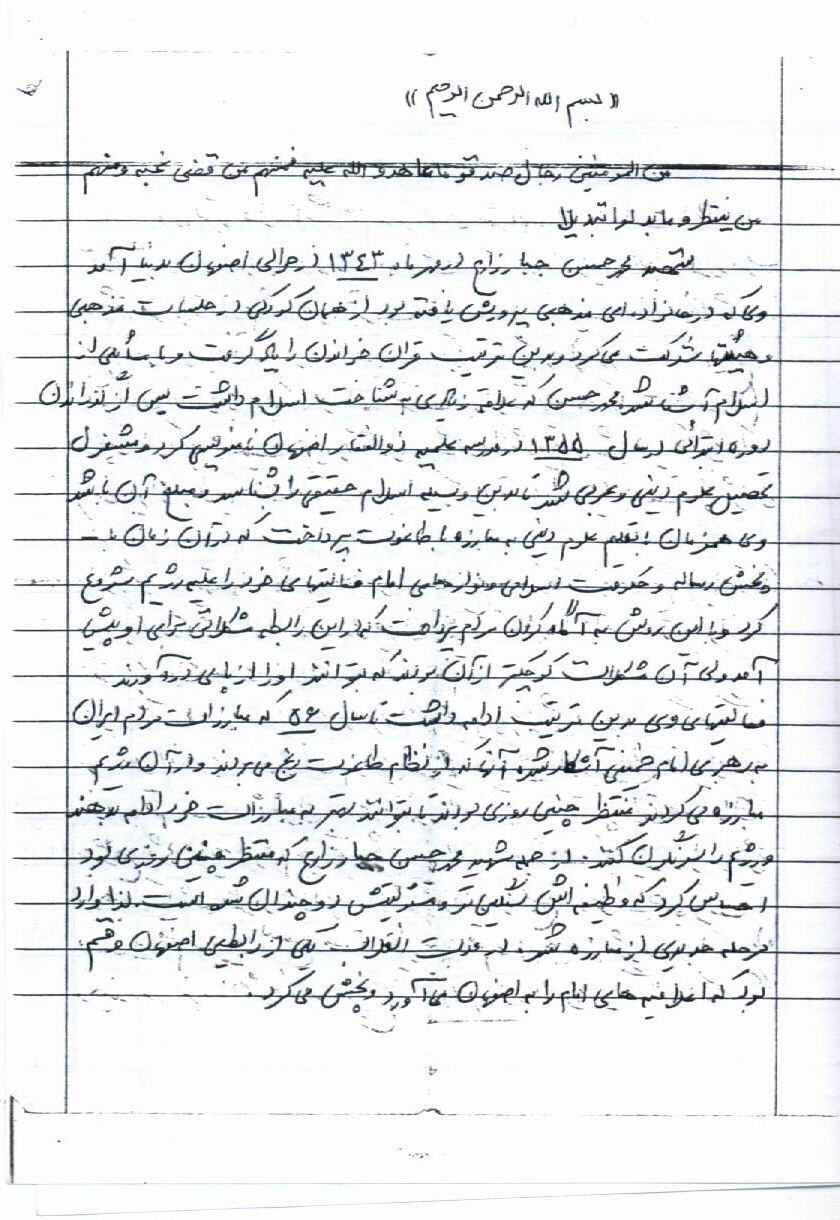 «بسم الله الرحمن الرحیم»
من المومنین رجال صدقو ما عاهدو الله علیه فمنهم من قضی نحبه و منهم
من ینتظر و ما بدلوا تبدیلا
شهید محمد حسن جبارزارع در مهر ماه ۱۳۴۳ در حوالی اصفهان بدنیا آمد
وی که در خانواده ای مذهبی پرورش یافته بود از همان کودکی در جلسات مذهبی
و هیئتها شرکت می کرد و بدین ترتیب قران خواندن را یاد گرفت و با مسائلی از
اسلام آشنا شد محمد حسن که علاقه زیادی به شناخت اسلام داشت پس از گذراندن
دوره ابتدائی در سال ۱۳۵۵ در مدرسه علمیه ذوالفقار اصفهان نامنویسی کرد و مشغول
تحصیل علوم دینی و عربی شد تا بدین وسیله اسلام حقیقی را بشناسد و مبلغ آن باشد
وی همزمان با تعلیم علوم دینی به مبارزه با طاغوت پرداخت که در آن زمان با
پخش رساله و حکومت اسلامی و نوارهای امام فعالیتهای خود را علیه رژیم شروع
کرد و با این روش به آگاه کردن مردم پرداخت که در این رابطه مشکلاتی برای او پیش
آمد ولی آن مشکلات کوچکتر از آن بودند که بتوانند او را از پای درآورند
فعالیتهای وی بدین ترتیب ادامه داشت تا سال ۵۶ که مبارزات مردم ایران
به رهبری امام خمینی آشکار شد آنها که از نظام طاغوت رنج می بردند و با آن رژیم
مبارزه می کردند منتظر چنین روزی بودند تا بتوانند بهتر به مبارزات خود ادامه بدهند
و رژیم را سرنگون کنند. از جمله شهید محمد حسن جبارزارع که منتظر چنین روزی بود
احساس کرد که وظیفه اش سنگین تر و مسئولیتش دو چندان شده است لذا وارد
مرحله جدیدی از مبارزه شد. در مدت انقلاب یکی از رابطین اصفهان و قم
بود که اعلامیه های امام را به اصفهان می آورد و پخش می کرد.